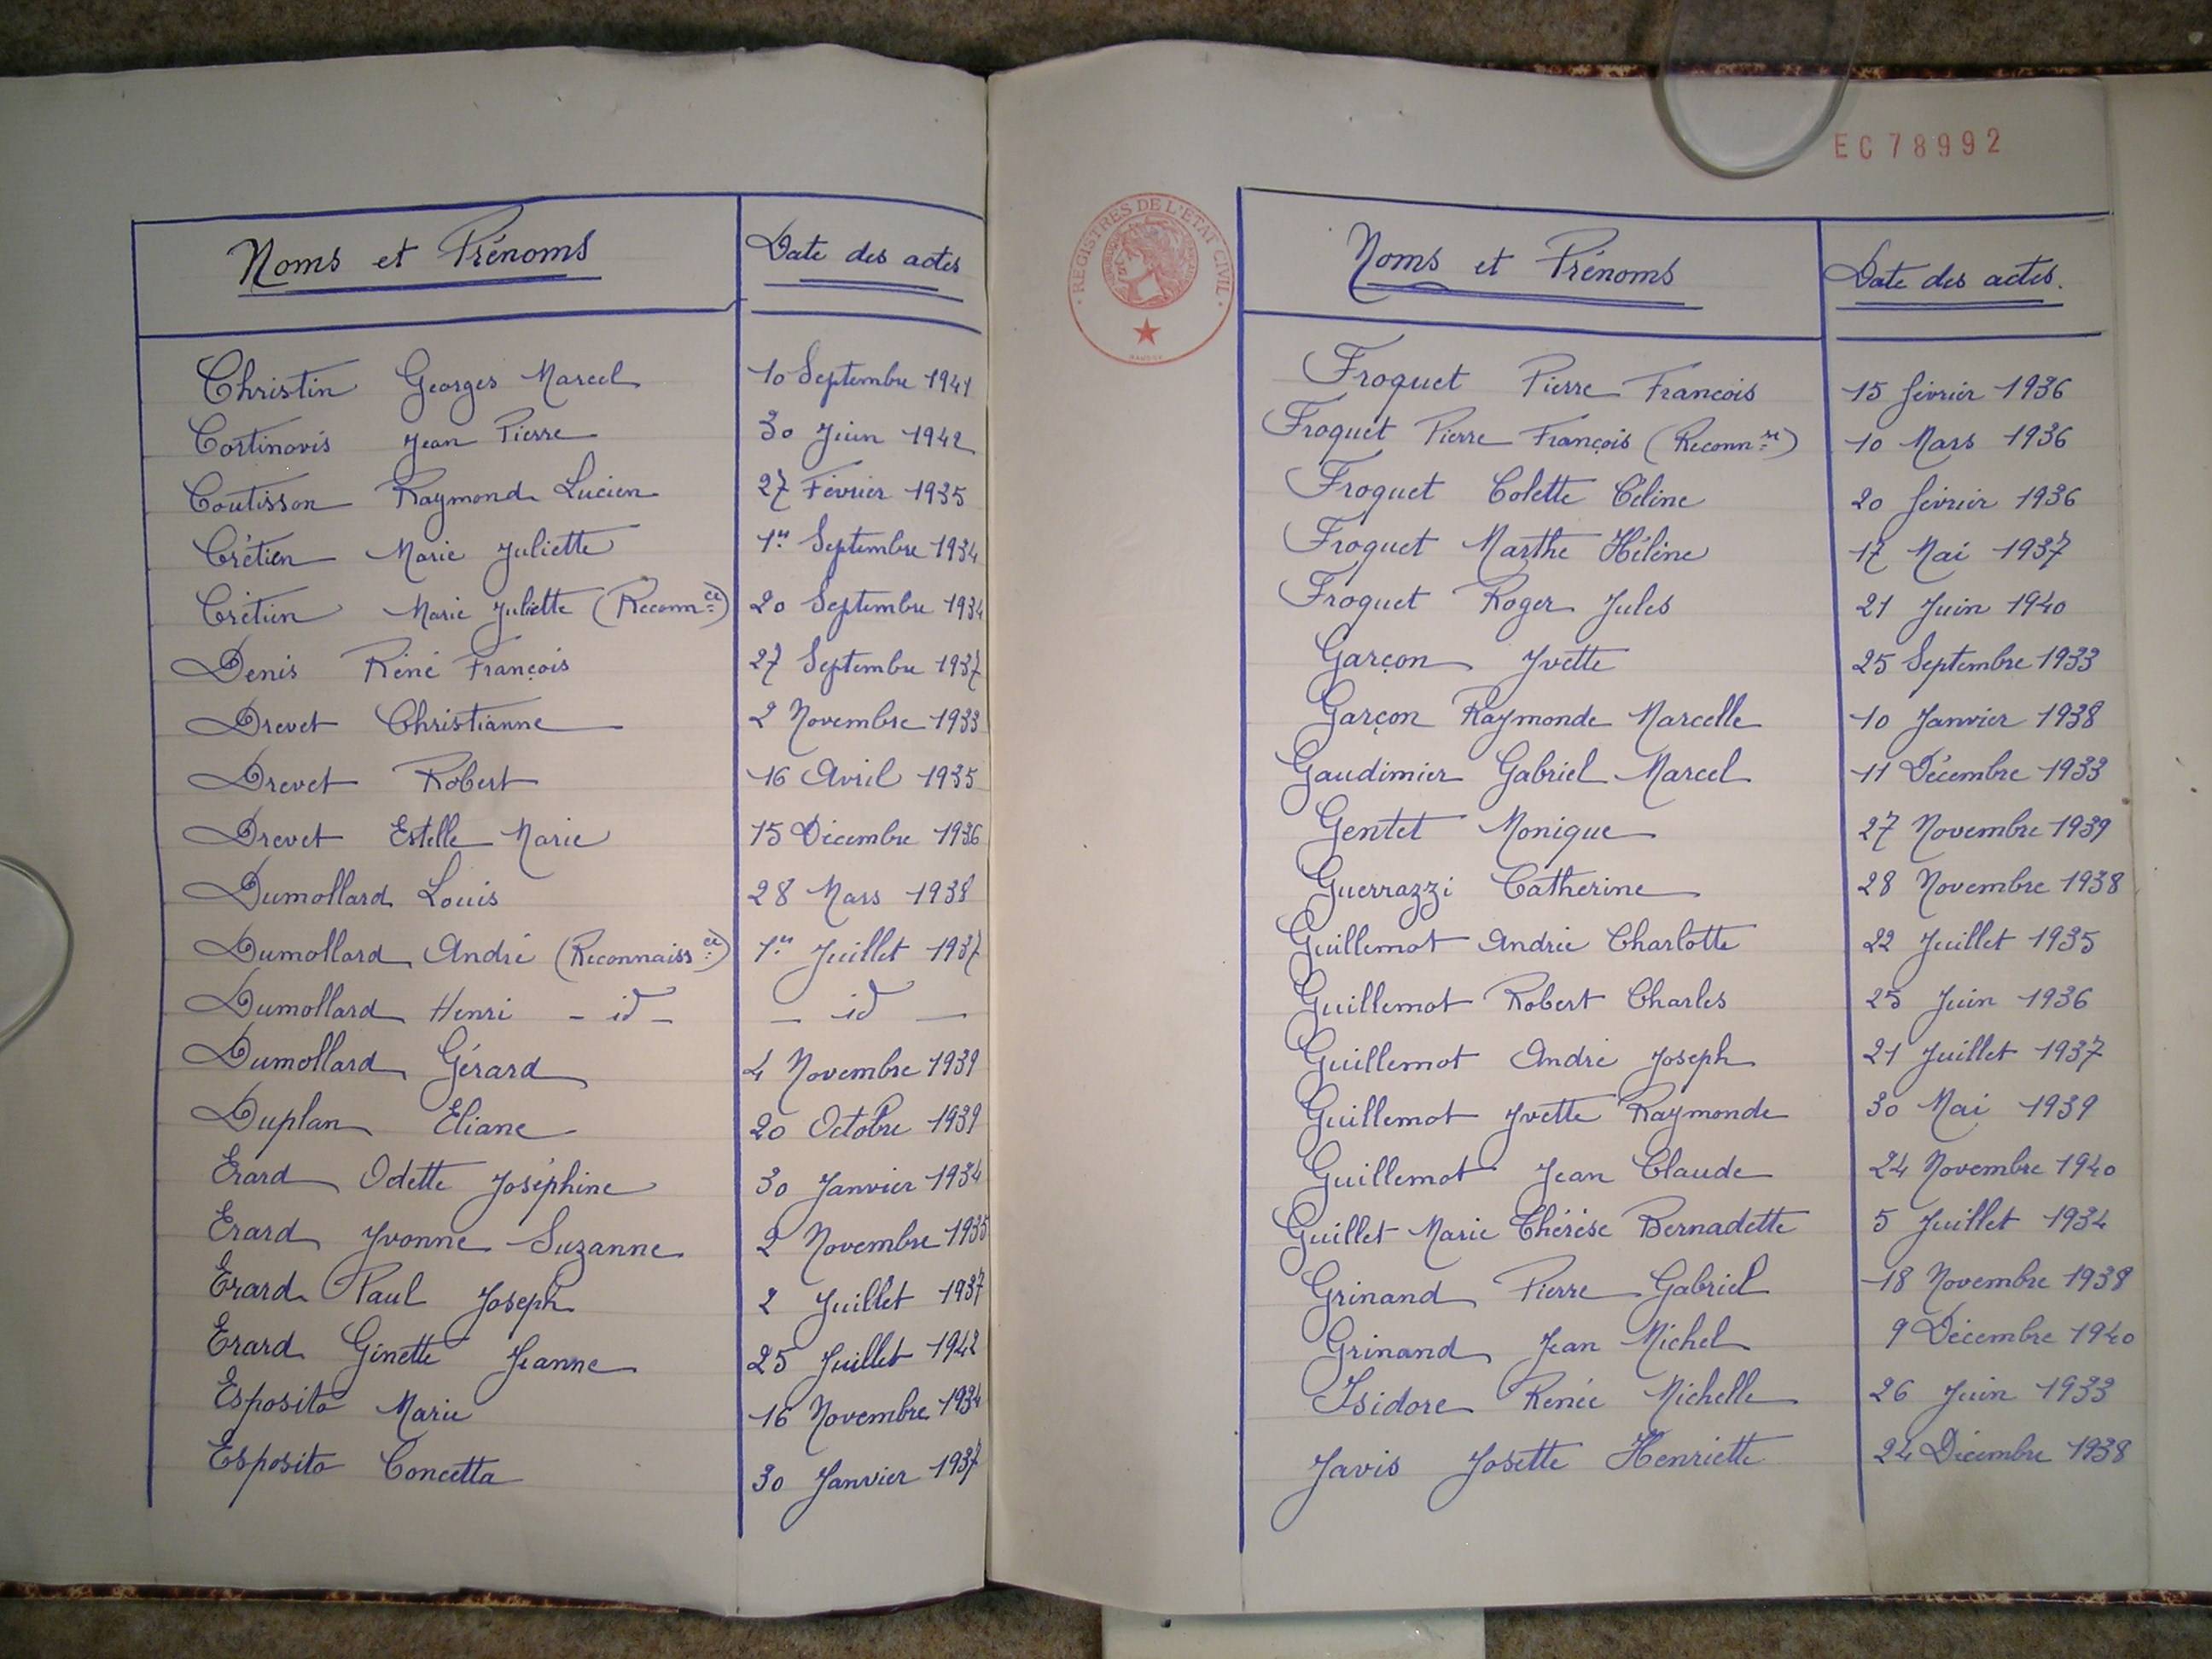 Noms et Prénoms Date des actes
Christin Georges Marcel 10 Septembre 1941
Cortinovis Jean Pierre 30 Juin 1942
Coutisson Raymond Lucien 27 Février 1935
Crétien Marie Juliette 1er Septembre 1934
Crétien Marie Juliette (Reconnce) 20 Septembre 1934
Denis Réné François 27 Septembre 1937
Drevet Christianne 2 Novembre 1933
Drevet Robert 16 Avril 1935
Drevet Estelle Marie 15 Décembre 1936
Dumollard Louis 28 Mars 1938
Dumollard André (Reconnaissce) 1er Juillet 1937
Dumollard Henri - id - - id -
Dumollard Gérard 4 Novembre 1939
Duplan Eliane 20 Octobre 1939
Erard Odette Joséphine 30 Janvier 1934
Erard Yvonne Suzanne 2 Novembre 1935
Erard Paul Joseph 2 Juillet 1937
Erard Ginette Jeanne 25 Juillet 1942
Esposito Marie 16 Novembre 1934
Esposito Concetta 30 Janvier 1937
EC78992
REGISTRES DE L'ETAT CIVIL
Noms et Prénoms Date des actes.
Froquet Pierre Francois 15 février 1936
Froquet Pierre François (Reconnce) 10 Mars 1936
Froquet Colette Céline 20 février 1936
Froquet Marthe Hélène 17 Mai 1937
Froquet Roger Jules 21 Juin 1940
Garçon Yvette 25 Septembre 1933
Garçon Raymonde Marcelle 10 Janvier 1938
Gaudimier Gabriel Marcel 11 Décembre 1933
Gentet Monique 27 Novembre 1939
Guerrazzi Catherine 28 Novembre 1938
Guillemot Andrée Charlotte 22 Juillet 1935
Guillemot Robert Charles 25 Juin 1936
Guillemot André Joseph 21 Juillet 1937
Guillemot Yvette Raymonde 30 Mai 1939
Guillemot Jean Claude 24 Novembre 1940
Guillet Marie Thérèse Bernadette 5 Juillet 1934
Grinand Pierre Gabriel 18 Novembre 1938
Grinand Jean Michel 9 Décembre 1940
Isidore Renée Michelle 26 Juin 1933
Javis Josette Henriette 24 Décembre 1938